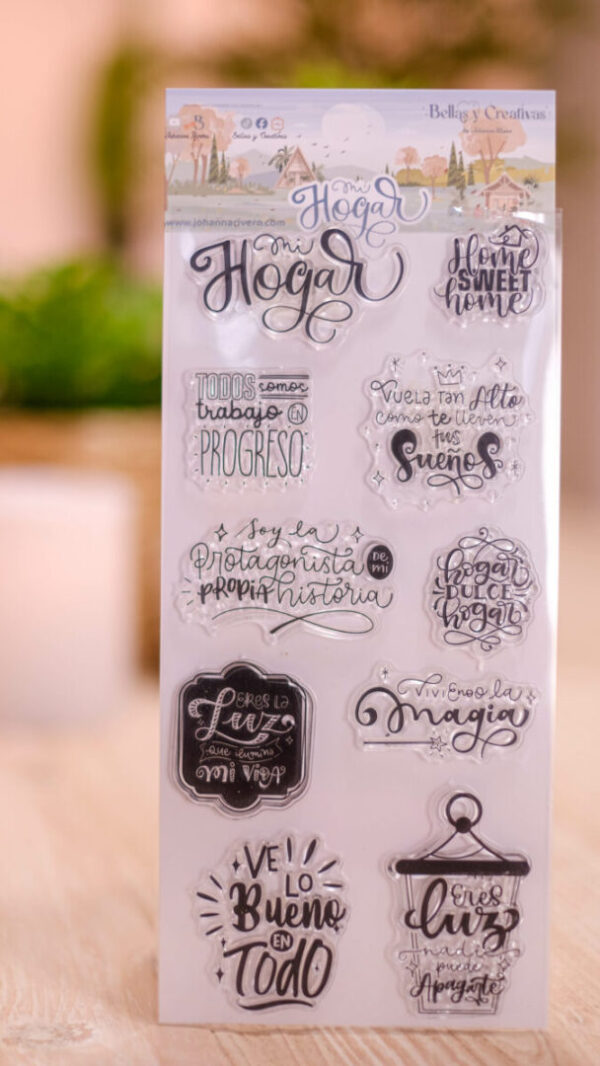 Bellas y Creativas
Johanna Rivera
Bellas y Creativas
mi
Hogar
www.johannarivera.com
mi
Hogar
Home
SWEET
home
TODOS somos
trabajo EN
PROGRESO
Vuela tan Alto
como te lleven
tus
Sueños
Soy la
Protagonista DE MI
PROPIA historia
hogar
DULCE
hogar
ERES LA
Luz
que ilumina
mi vida
Viviendo la
magia
VE
LO
Bueno
EN
TODO
Eres
luz
nadie
puede
Apagarte